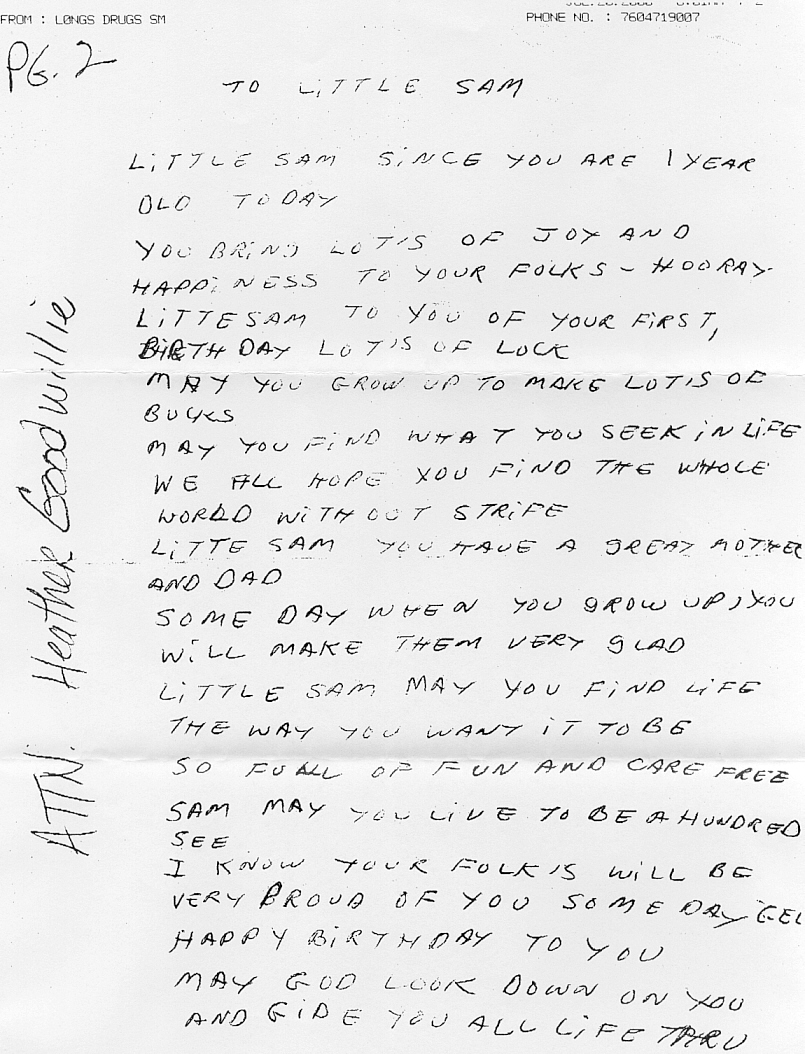 FROM : LONGS DRUGS SM
PHONE NO. : 7604719007
PG. 2
TO LiTTLE SAM
LiTTLE SAM SiNCE YOU ARE 1 YEAR
OLD TODAY
YOU BRiNG LOT'S OF JOY AND
HAPPiNESS TO YOUR FOLKS - HOORAY
LiTTE SAM TO YOU OF YOUR FiRST,
BiRTHDAY LOT'S OF LOCK
MAY YOU GROW UP TO MAKE LOT'S OF
BUCKS
MAY YOU FiND WHAT YOU SEEK iN LiFE
WE ALL HOPE YOU FiND THE WHOLE
WORLD WiTH OUT STRiFE
LiTTE SAM YOU HAVE A GREAT MOTHER
AND DAD
SOME DAY WHEN YOU GROW UP, YOU
WiLL MAKE THEM VERY GLAD
LiTTLE SAM MAY YOU FiND LiFE
THE WAY YOU WANT iT TO BE
SO FULL OF FUN AND CARE FREE
SAM MAY YOU LiVE TO BE A HUNDRED
SEE
I KNOW YOUR FOLK'S WiLL BE
VERY PROUD OF YOU SOME DAY
HAPPY BiRTHDAY TO YOU
MAY GOD LOOK DOWN ON YOU
AND GiDE YOU ALL LiFE THRU
ATTN. Heather Goodwillie